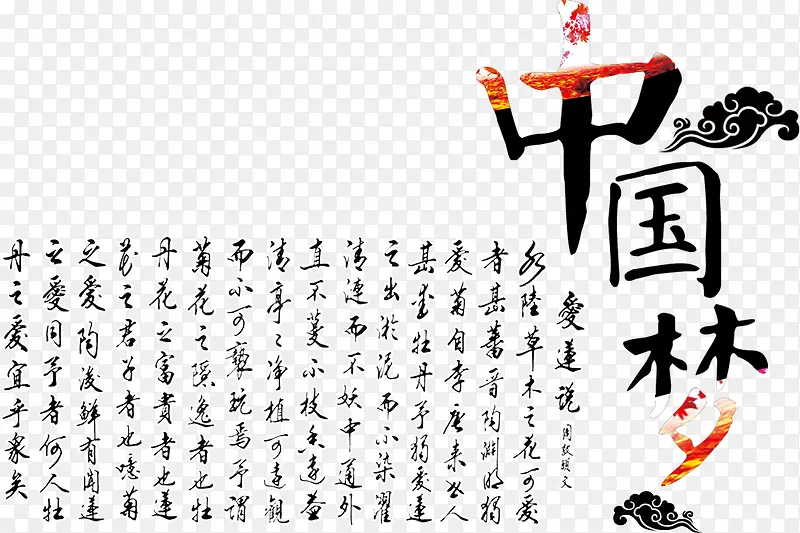 中国梦
愛蓮说
周敦頤文
水陸草木之花可愛
者甚蕃晋陶淵明獨
愛菊自李唐来世人
甚愛牡丹予獨愛蓮
之出淤泥而不染濯
清漣而不妖中通外
直不蔓不枝香遠益
清亭〻净植可遠觀
而不可褻玩焉予謂
菊花之隱逸者也牡
丹花之富貴者也蓮
花之君子者也噫菊
之愛陶後鮮有聞蓮
之愛同予者何人牡
丹之愛宜乎衆矣